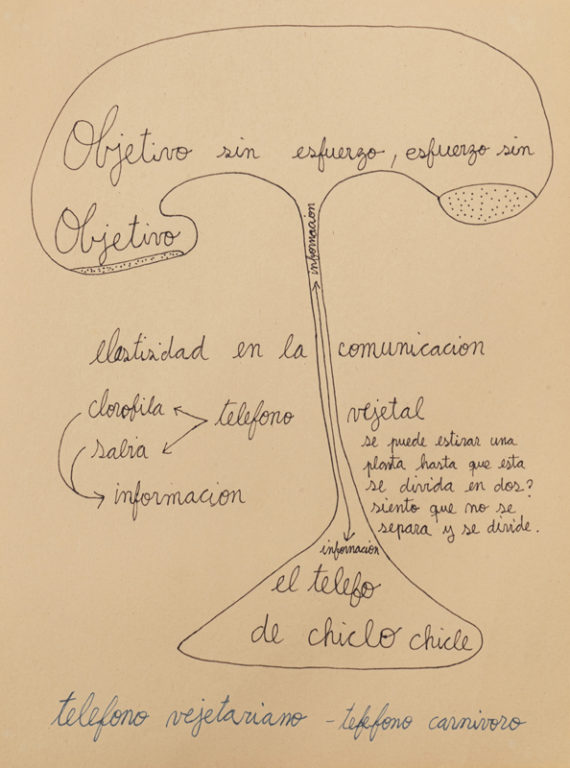 Objetivo sin esfuerzo, esfuerzo sin
Objetivo
informacion
elastisidad en la comunicacion
clorofila
telefono vejetal
sabia
informacion
se puede estirar una
planta hasta que esta
se divida en dos?
siento que no se
separa y se divide.
informacion
el telefo
de chiclo chicle
telefono vejetariano - telefono carnivoro